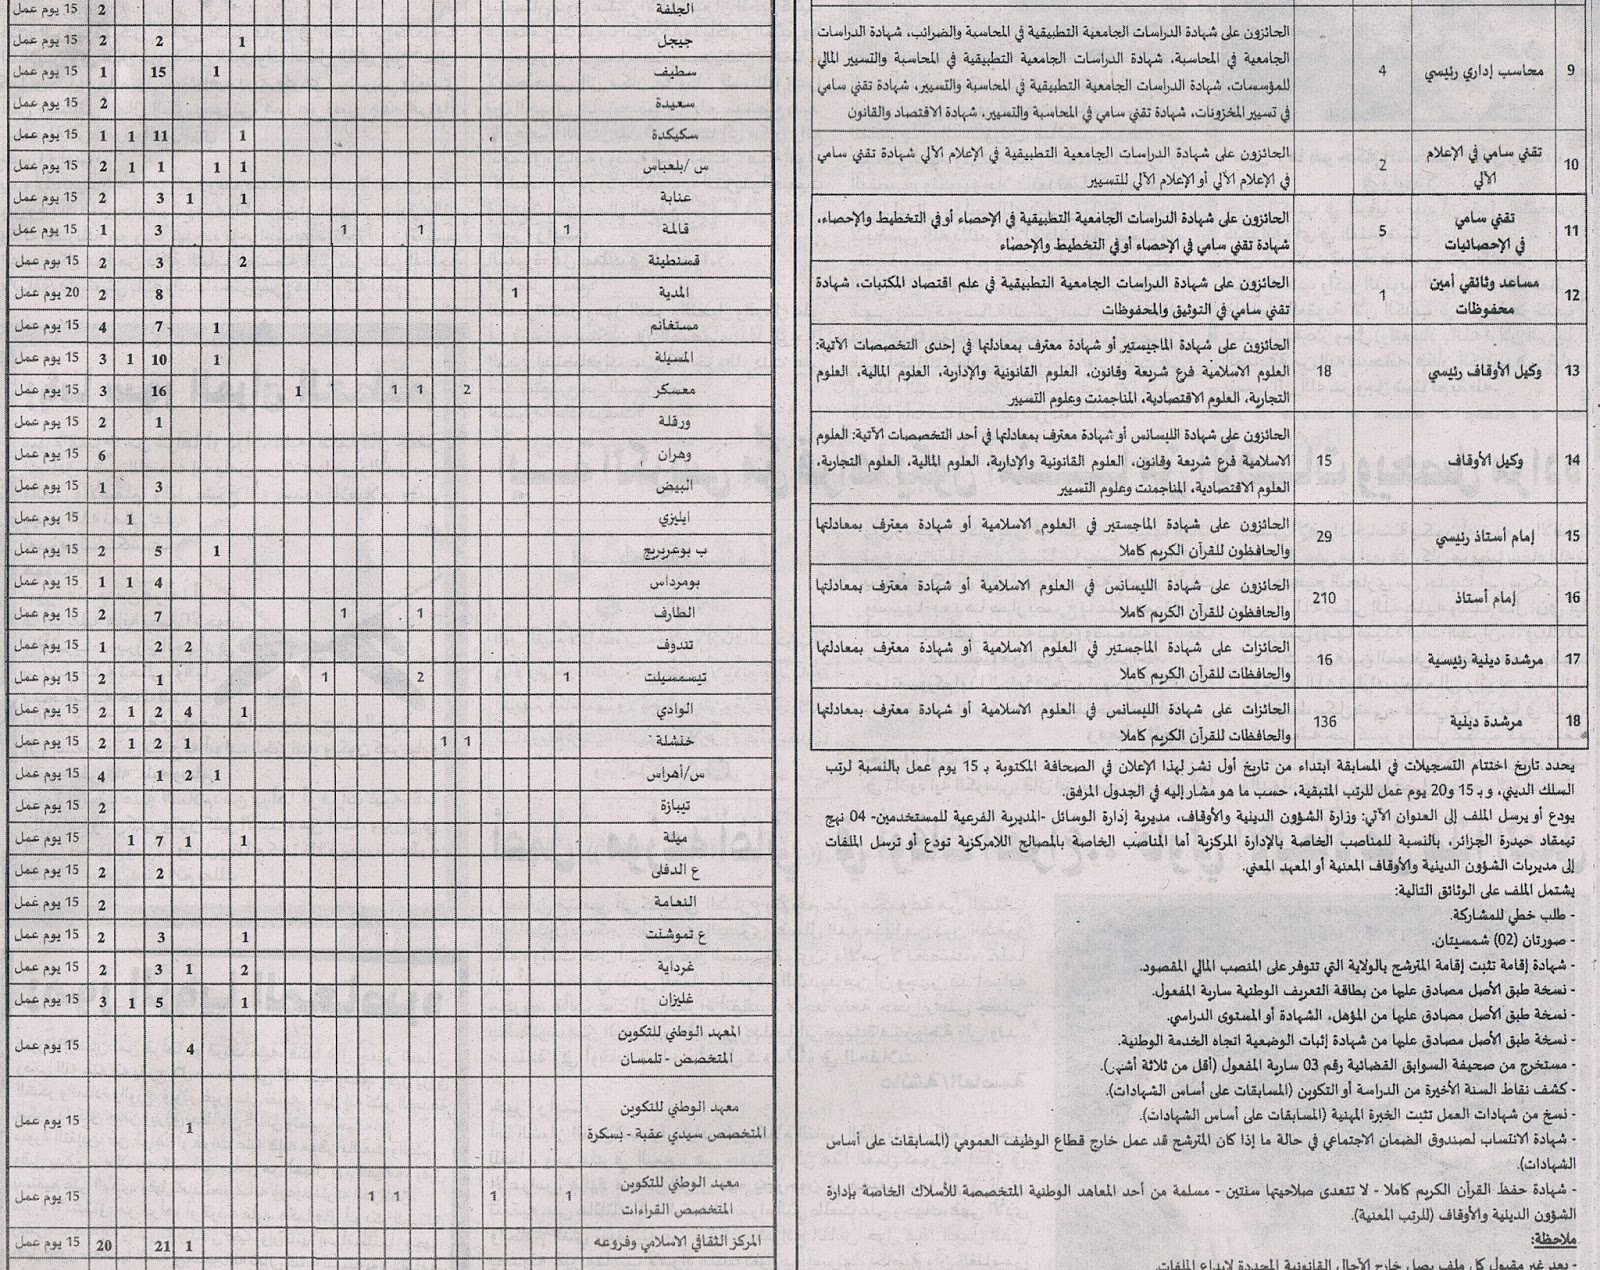 9 محاسب إداري رئيسي 4 الحائزون على شهادة الدراسات الجامعية التطبيقية في المحاسبة والضرائب، شهادة الدراسات
الجامعية في المحاسبة، شهادة الدراسات الجامعية التطبيقية في المحاسبة والتسيير المالي
للمؤسسات، شهادة الدراسات الجامعية التطبيقية في المحاسبة والتسيير، شهادة تقني سامي
في تسيير المخزونات، شهادة تقني سامي في المحاسبة والتسيير، شهادة الاقتصاد والقانون
10 تقني سامي في الإعلام الآلي 2 الحائزون على شهادة الدراسات الجامعية التطبيقية في الإعلام الآلي شهادة تقني سامي
في الإعلام الآلي أو الإعلام الآلي للتسيير
11 تقني سامي في الإحصائيات 5 الحائزون على شهادة الدراسات الجامعية التطبيقية في الإحصاء أو في التخطيط والإحصاء،
شهادة تقني سامي في الإحصاء أو في التخطيط والإحصاء
12 مساعد وثائقي أمين محفوظات 1 الحائزون على شهادة الدراسات الجامعية التطبيقية في علم اقتصاد المكتبات، شهادة
تقني سامي في التوثيق والمحفوظات
13 وكيل الأوقاف رئيسي 18 الحائزون على شهادة الماجيستير أو شهادة معترف بمعادلتها في إحدى التخصصات الآتية:
العلوم الاسلامية فرع شريعة وقانون، العلوم القانونية والإدارية، العلوم المالية، العلوم
التجارية، العلوم الاقتصادية، المناجمنت وعلوم التسيير
14 وكيل الأوقاف 15 الحائزون على شهادة الليسانس أو شهادة معترف بمعادلتها في أحد التخصصات الآتية: العلوم
الاسلامية فرع شريعة وقانون، العلوم القانونية والإدارية، العلوم المالية، العلوم التجارية،
العلوم الاقتصادية، المناجمنت وعلوم التسيير
15 إمام أستاذ رئيسي 29 الحائزون على شهادة الماجستير في العلوم الاسلامية أو شهادة معترف بمعادلتها
والحافظون للقرآن الكريم كاملا
16 إمام أستاذ 210 الحائزون على شهادة الليسانس في العلوم الاسلامية أو شهادة معترف بمعادلتها
والحافظون للقرآن الكريم كاملا
17 مرشدة دينية رئيسية 16 الحائزات على شهادة الماجستير في العلوم الاسلامية أو شهادة معترف بمعادلتها
والحافظات للقرآن الكريم كاملا
18 مرشدة دينية 136 الحائزات على شهادة الليسانس في العلوم الاسلامية أو شهادة معترف بمعادلتها
والحافظات للقرآن الكريم كاملا
يحدد تاريخ اختتام التسجيلات في المسابقة ابتداء من تاريخ أول نشر لهذا الإعلان في الصحافة المكتوبة بـ 15 يوم عمل بالنسبة لرتب
السلك الديني، و بـ 15 و20 يوم عمل للرتب المتبقية، حسب ما هو مشار إليه في الجدول المرفق.
يودع أو يرسل الملف إلى العنوان الآتي: وزارة الشؤون الدينية والأوقاف، مديرية إدارة الوسائل -المديرية الفرعية للمستخدمين- 04 نهج
تيمقاد حيدرة الجزائر، بالنسبة للمناصب الخاصة بالإدارة المركزية أما المناصب الخاصة بالمصالح اللامركزية تودع أو ترسل الملفات
إلى مديريات الشؤون الدينية والأوقاف المعنية أو المعهد المعني.
يشتمل الملف على الوثائق التالية:
- طلب خطي للمشاركة.
- صورتان (02) شمسيتان.
- شهادة إقامة تثبت إقامة المترشح بالولاية التي تتوفر على المنصب المالي المقصود.
- نسخة طبق الأصل مصادق عليها من بطاقة التعريف الوطنية سارية المفعول.
- نسخة طبق الأصل مصادق عليها من المؤهل، الشهادة أو المستوى الدراسي.
- نسخة طبق الأصل مصادق عليها من شهادة إثبات الوضعية اتجاه الخدمة الوطنية.
- مستخرج من صحيفة السوابق القضائية رقم 03 سارية المفعول (أقل من ثلاثة أشهر).
- كشف نقاط السنة الأخيرة من الدراسة أو التكوين (المسابقات على أساس الشهادات).
- نسخ من شهادات العمل تثبت الخبرة المهنية (المسابقات على أساس الشهادات).
- شهادة الانتساب لصندوق الضمان الاجتماعي في حالة ما إذا كان المترشح قد عمل خارج قطاع الوظيف العمومي (المسابقات على أساس
الشهادات).
- شهادة حفظ القرآن الكريم كاملا - لا تتعدى صلاحيتها سنتين - مسلمة من أحد المعاهد الوطنية المتخصصة للأسلاك الخاصة بإدارة
الشؤون الدينية والأوقاف (للرتب المعنية).
ملاحظة:
- يعد غير مقبول كل ملف يصل خارج الآجال القانونية المحددة لإيداع الملفات.
الجلفة 2 15 يوم عمل
جيجل 1 2 2 15 يوم عمل
سطيف 1 15 1 15 يوم عمل
سعيدة 2 15 يوم عمل
سكيكدة 1 11 1 1 15 يوم عمل
س /بلعباس 1 1 1 1 2 15 يوم عمل
عنابة 1 1 3 2 15 يوم عمل
قالمة 1 1 1 3 1 15 يوم عمل
قسنطينة 2 3 2 15 يوم عمل
المدية 1 8 2 20 يوم عمل
مستغانم 1 7 4 15 يوم عمل
المسيلة 1 10 1 3 15 يوم عمل
معسكر 2 1 1 1 16 3 15 يوم عمل
ورقلة 1 2 15 يوم عمل
وهران 6 15 يوم عمل
البيض 3 1 15 يوم عمل
ايليزي 1 15 يوم عمل
ب بوعريريج 1 5 2 15 يوم عمل
بومرداس 4 1 1 15 يوم عمل
الطارف 1 1 7 2 15 يوم عمل
تندوف 2 2 1 15 يوم عمل
تيسمسيلت 1 2 1 1 2 15 يوم عمل
الوادي 1 4 2 1 2 15 يوم عمل
خنشلة 1 1 1 2 1 2 15 يوم عمل
س/أهراس 1 2 1 4 15 يوم عمل
تيبازة 2 15 يوم عمل
ميلة 1 1 7 1 15 يوم عمل
ع الدفلى 2 2 15 يوم عمل
النعامة 2 15 يوم عمل
ع تموشنت 1 3 2 15 يوم عمل
غرداية 2 1 3 2 15 يوم عمل
غليزان 1 5 1 3 15 يوم عمل
المعهد الوطني للتكوين
المتخصص - تلمسان 4 15 يوم عمل
معهد الوطني للتكوين
المتخصص سيدي عقبة - بسكرة 1 15 يوم عمل
معهد الوطني للتكوين
المتخصص القراءات 1 1 1 1 15 يوم عمل
المركز الثقافي الاسلامي وفروعه 1 21 20 15 يوم عمل